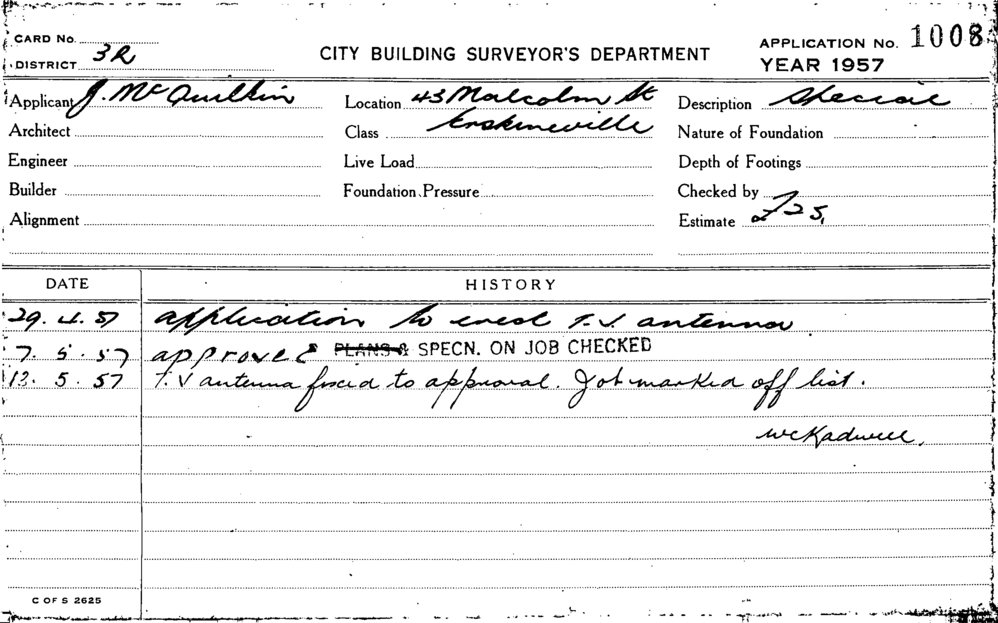 CARD No.
APPLICATION No. 1008
DISTRICT 3R
CITY BUILDING SURVEYOR'S DEPARTMENT
YEAR 1957
Applicant J. McQuilkin Location 43 Malcolm St Description Special
Architect Class Erskineville Nature of Foundation
Engineer Live Load Depth of Footings
Builder Foundation Pressure Checked by
Alignment Estimate £25,
DATE HISTORY
29. 4. 57 application to erect T.V. antenna
7. 5. 57 approved PLANS & SPECN. ON JOB CHECKED
13. 5. 57 T.V antenna fixed to approval. Job marked off list.
C OF S 2625